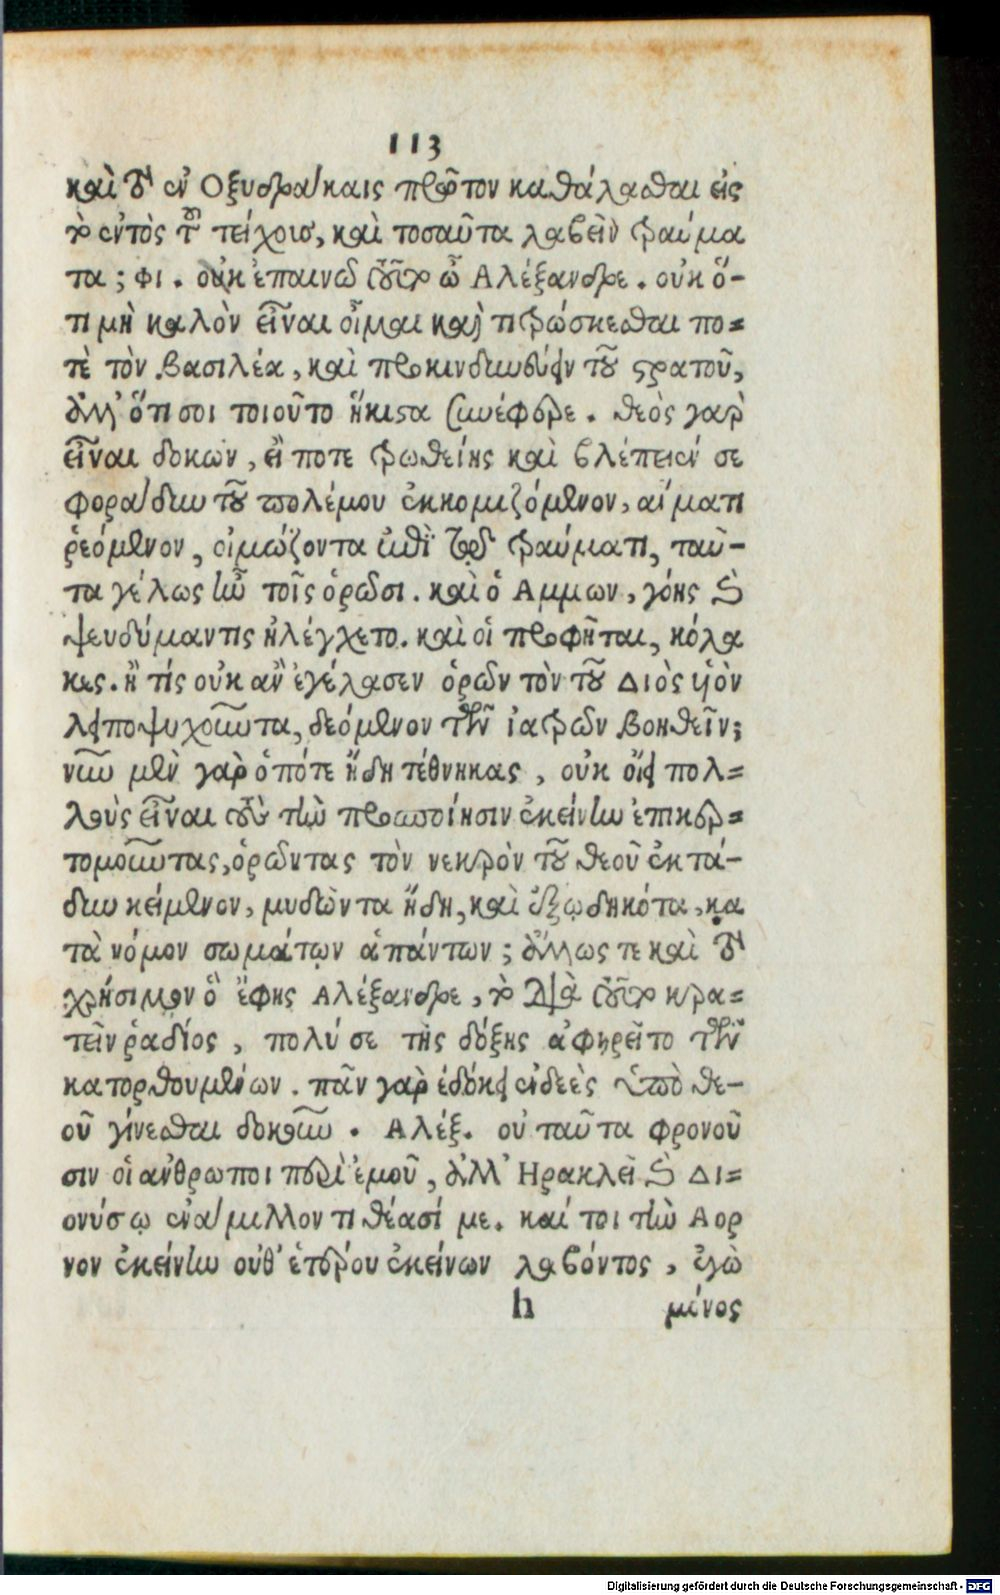 113
καὶ τὸ ἐν Οξυδράκαις πρῶτον καθάλασθαι εἰς
τὸ ἐντὸς τοῦ τείχους, καὶ τοσαῦτα λαβεῖν τραύμα
τα; φι. οὐκ ἐπαινῶ τοῦτο ὦ Αλέξανδρε. οὐκ ὅ-
τι μὴ καλὸν εἶναι οἶμαι καὶ τιτρώσκεσθαι πο=
τὲ τὸν βασιλέα, καὶ προκινδυνεύειν τοῦ στρατοῦ,
ἀλλ' ὅτι σοι τοιοῦτο ἥκιστα συνέφερε. θεὸς γαρ
εἶναι δοκων, εἴ ποτε τρωθείης καὶ βλέπειέν σε
φοράδην τοῦ πολέμου ἐκκομιζόμενον, αἵματι
ῥεόμενον, οἰμώζοντα ἐπὶ τῷ τραύματι, ταῦ-
τα γέλως ἦν τοῖς ὁρῶσι. καὶ ὁ Αμμων, γόης καὶ
ψευδόμαντις ἠλέγχετο. καὶ οἱ προφῆται, κόλα
κες. ἢ τίς οὐκ ἂν ἐγέλασεν ὁρῶν τὸν τοῦ Διὸς υἱὸν
λειποψυχοῦντα, δεόμενον τῶν ἰατρῶν βοηθεῖν;
νῦν μὲν γαρ ὁπότε ἤδη τέθνηκας, οὐκ οἴει πολ=
λοὺς εἶναι τοὺς τὴν προσποίησιν ἐκείνην ἐπικερ=
τομοῦντας, ὁρῶντας τὸν νεκρὸν τοῦ θεοῦ ἐκτά-
δην κείμενον, μυδῶντα ἤδη, καὶ ἐξῳδηκότα, κα
τὰ νόμον σωμάτων ἁπάντων; ἄλλως τε καὶ τὸ
χρήσιμον ὃ ἔφης Αλέξανδρε, τὸ διὰ τοῦτο κρα=
τεῖν ῥαδίος, πολύ σε τῆς δόξης ἀφῃρεῖτο τῶν
κατορθουμένων. πᾶν γαρ ἐδόκει ἐνδεὲς ὑπὸ θε-
οῦ γίνεσθαι δοκοῦν. Αλέξ. οὐ ταῦτα φρονοῦ
σιν οἱ ἀνθρωποι περὶ ἐμοῦ, ἀλλ' Ηρακλεῖ καὶ Δι=
ονύσῳ ἐνάμιλλον τιθέασί με. καί τοι τὴν Αορ
νον ἐκείνην οὐθ' ἑτέρου ἐκείνων λαβόντος, ἐγὼ
h μόνος
Digitalisierung gefördert durch die Deutsche Forschungsgemeinschaft - DFG